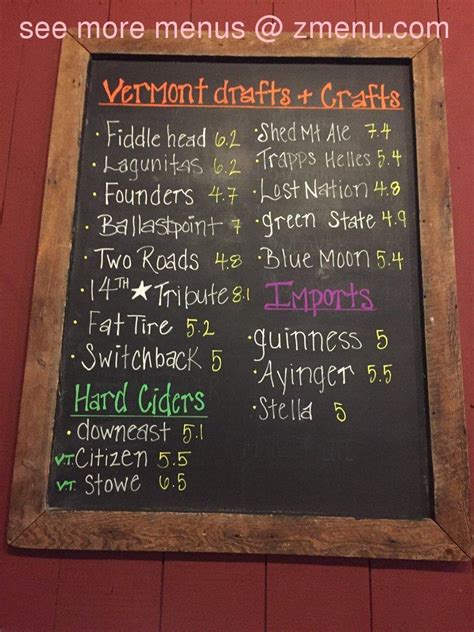 see more menus @ zmenu.com
Vermont drafts + Crafts
• Fiddle head 6.2
• Lagunitas 6.2
• Founders 4.7
• Ballastpoint 7
• Two Roads 4.8
• 14TH ★ Tribute 8.1
• Fat Tire 5.2
• Switchback 5
Hard Ciders
• downeast 5.1
V.T. Citizen 5.5
V.T. Stowe 6.5
• Shed Mt Ale 7.4
• Trapps Helles 5.4
• Lost Nation 4.8
• green State 4.9
• Blue Moon 5.4
Imports
• guinness 5
• Ayinger 5.5
• Stella 5